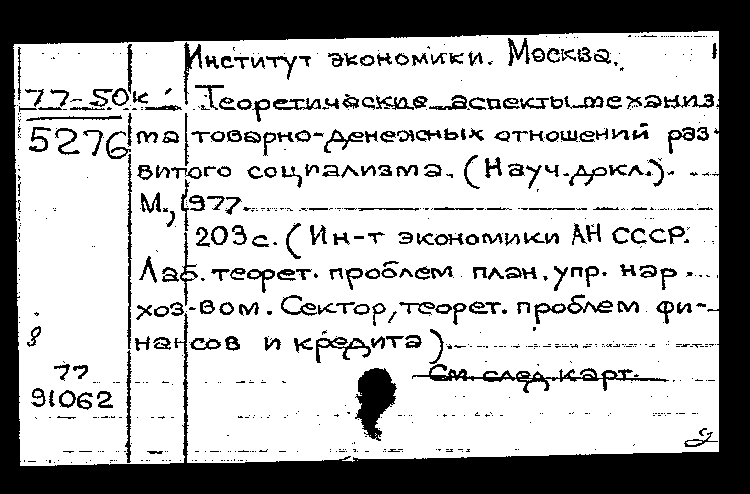 Институт экономики. Москва.
77-50к Теоретические аспекты механиз
5276 ма товарно-денежных отношений раз-
витого социализма. (Науч. докл.).
М., 1977.
203с. (Ин-т экономики АН СССР.
Лаб. теорет. проблем план. упр. нар.
хоз-вом. Сектор, теорет. проблем фи-
нансов и кредита).
См. след. карт.
77
91062